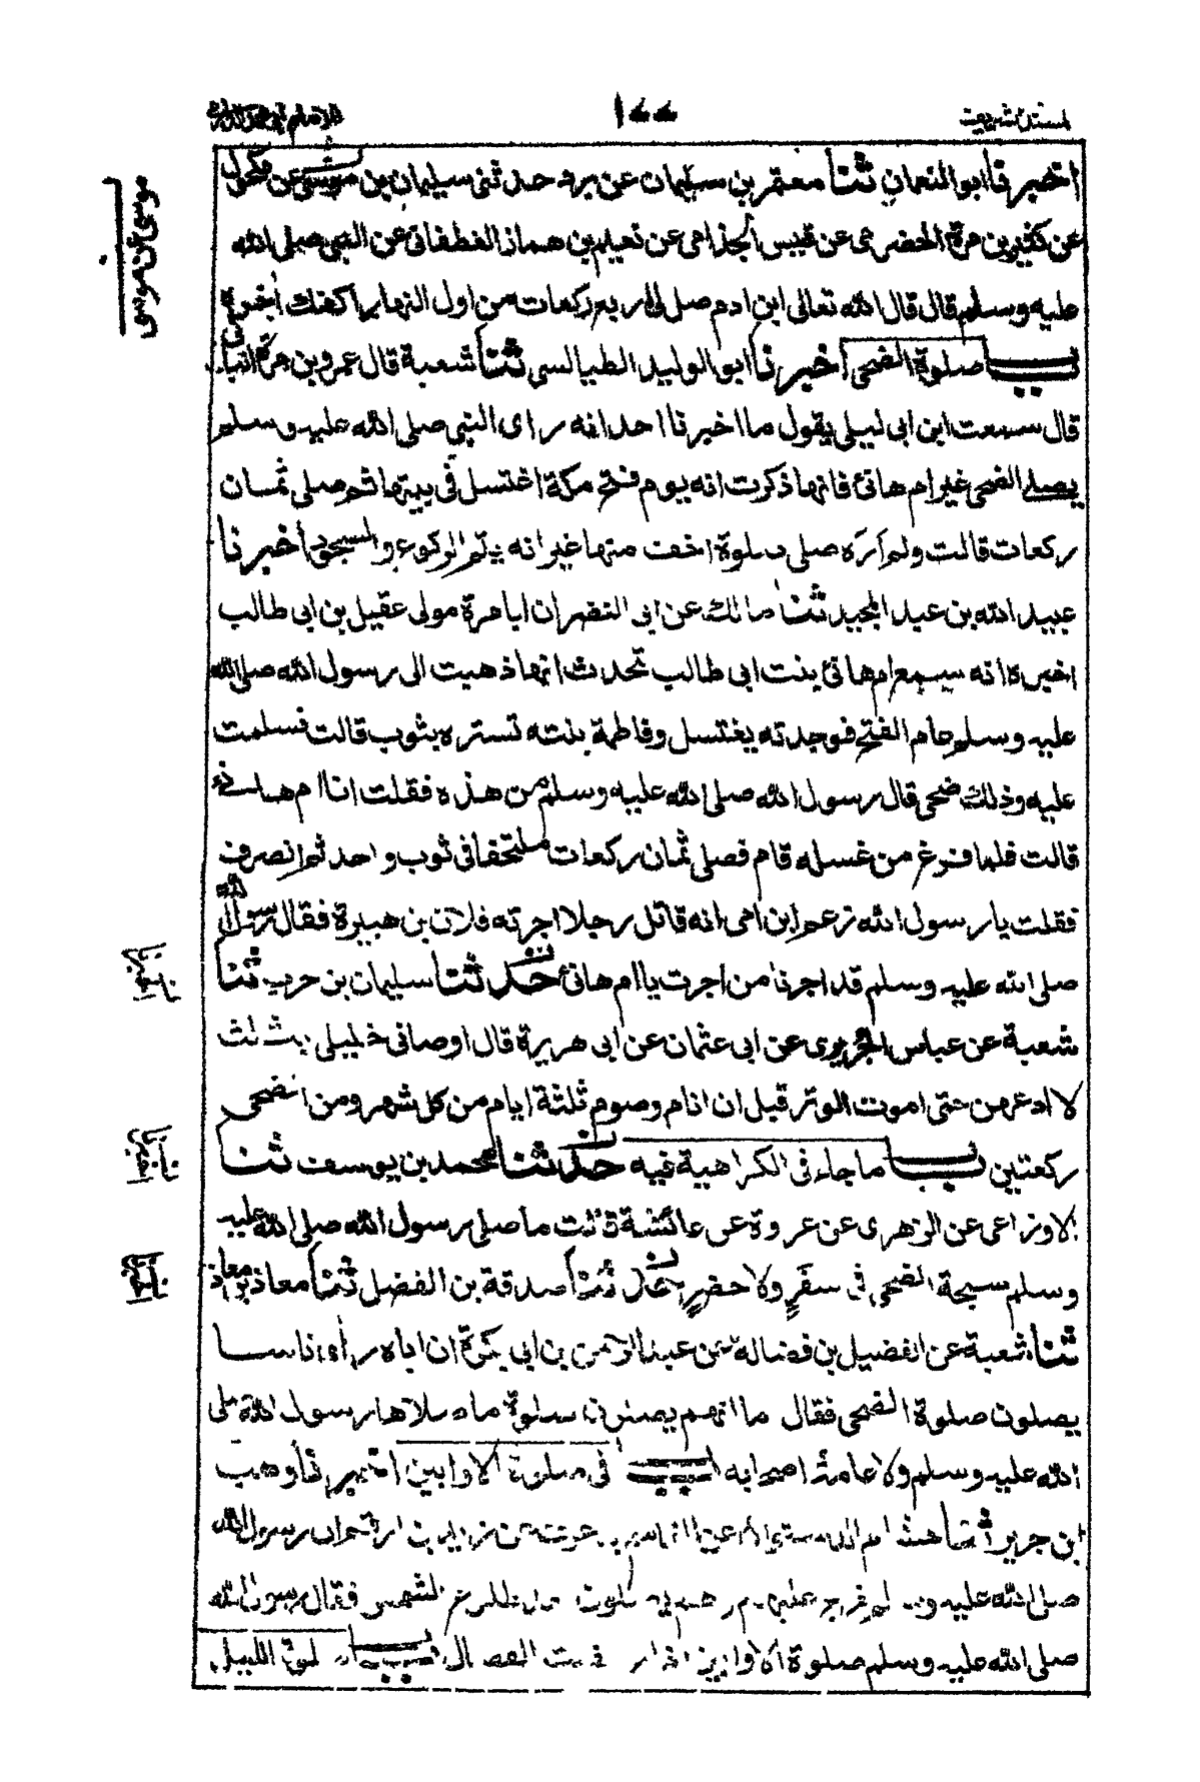 مسند شريف
١٧٧
اخبرنا ابو النعمان ثنا معتمر بن سليمان عن برد حدثنى سليمان بن موسى عن مكحول
عن كثير بن مرة الحضرمى عن قيس الجذامى عن نعيم بن همار الغطفانى عن النبى صلى الله
عليه وسلم قال قال الله تعالى ابن ادم صل لى اربع ركعات من اول النهار اكفك اخره
باب صلوة الضحى اخبرنا ابو الوليد الطيالسى ثنا شعبة قال عمرو بن مرة انبأنى
قال سمعت ابن ابى ليلى يقول ما اخبرنا احد انه راى النبى صلى الله عليه وسلم
يصلى الضحى غير ام هانئ فانها ذكرت انه يوم فتح مكة اغتسل فى بيتها ثم صلى ثمان
ركعات قالت ولم اره صلى صلوة اخف منها غير انه يتم الركوع والسجود اخبرنا
عبيد الله بن عبد المجيد ثنا مالك عن ابى النضر ان ابا مرة مولى عقيل بن ابى طالب
اخبره انه سمع ام هانئ بنت ابى طالب تحدث انها ذهبت الى رسول الله صلى الله
عليه وسلم عام الفتح فوجدته يغتسل وفاطمة بنته تستره بثوب قالت فسلمت
عليه وذلك ضحى قال رسول الله صلى الله عليه وسلم من هذه فقلت انا ام هانئ
قالت فلما فرغ من غسله قام فصلى ثمان ركعات ملتحفا فى ثوب واحد ثم انصرف
فقلت يا رسول الله زعم ابن امى انه قاتل رجلا اجرته فلان بن هبيرة فقال رسول الله
صلى الله عليه وسلم قد اجرنا من اجرت يا ام هانئ حدثنا سليمان بن حرب ثنا
شعبة عن عباس الجريرى عن ابى عثمان عن ابى هريرة قال اوصانى خليلى بثلث
لا ادعهن حتى اموت الوتر قبل ان انام وصوم ثلثة ايام من كل شهر ومن الضحى
ركعتين باب ما جاء فى الكراهية فيه حدثنا محمد بن يوسف ثنا
الاوزاعى عن الزهرى عن عروة عن عائشة قالت ما صلى رسول الله صلى الله عليه
وسلم سبحة الضحى فى سفر ولا حضر حدثنا صدقة بن الفضل ثنا معاذ بن معاذ
ثنا شعبة عن الفضيل بن فضالة عن عبد الرحمن بن ابى بكرة ان اباه رأى ناسا
يصلون صلوة الضحى فقال ما انهم يصلون صلوة ما صلاها رسول الله صلى
الله عليه وسلم ولا عامة اصحابه باب فى صلوة الاوابين اخبرنا وهب
ابن جرير ثنا هشام الدستوائى عن القاسم بن عوف عن زيد بن ارقم ان رسول الله
صلى الله عليه وسلم خرج عليهم وهم يصلون بعد طلوع الشمس فقال رسول الله
صلى الله عليه وسلم صلوة الاوابين اذا رمضت الفصال باب صلوة الليل
موسى بن موسى
اخبرنا
اخبرنا
اخبرنا